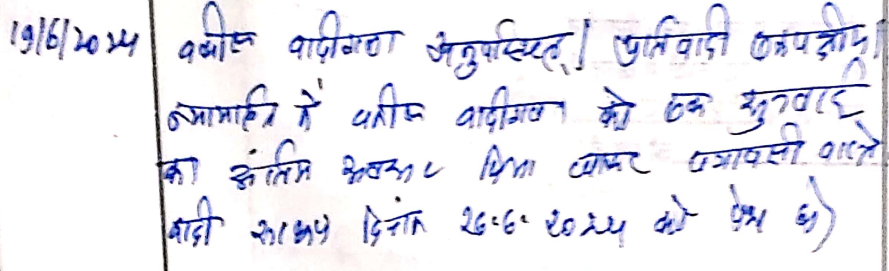 19/6/2024 वकील वादीगण अनुपस्थित। प्रतिवादी एकपक्षीय।
न्यायहित में वकील वादीगण को एक सुनवाई
का अंतिम अवसर दिया जाकर पत्रावली वास्ते
वादी साक्ष्य दिनांक 26.6.2024 को पेश हो